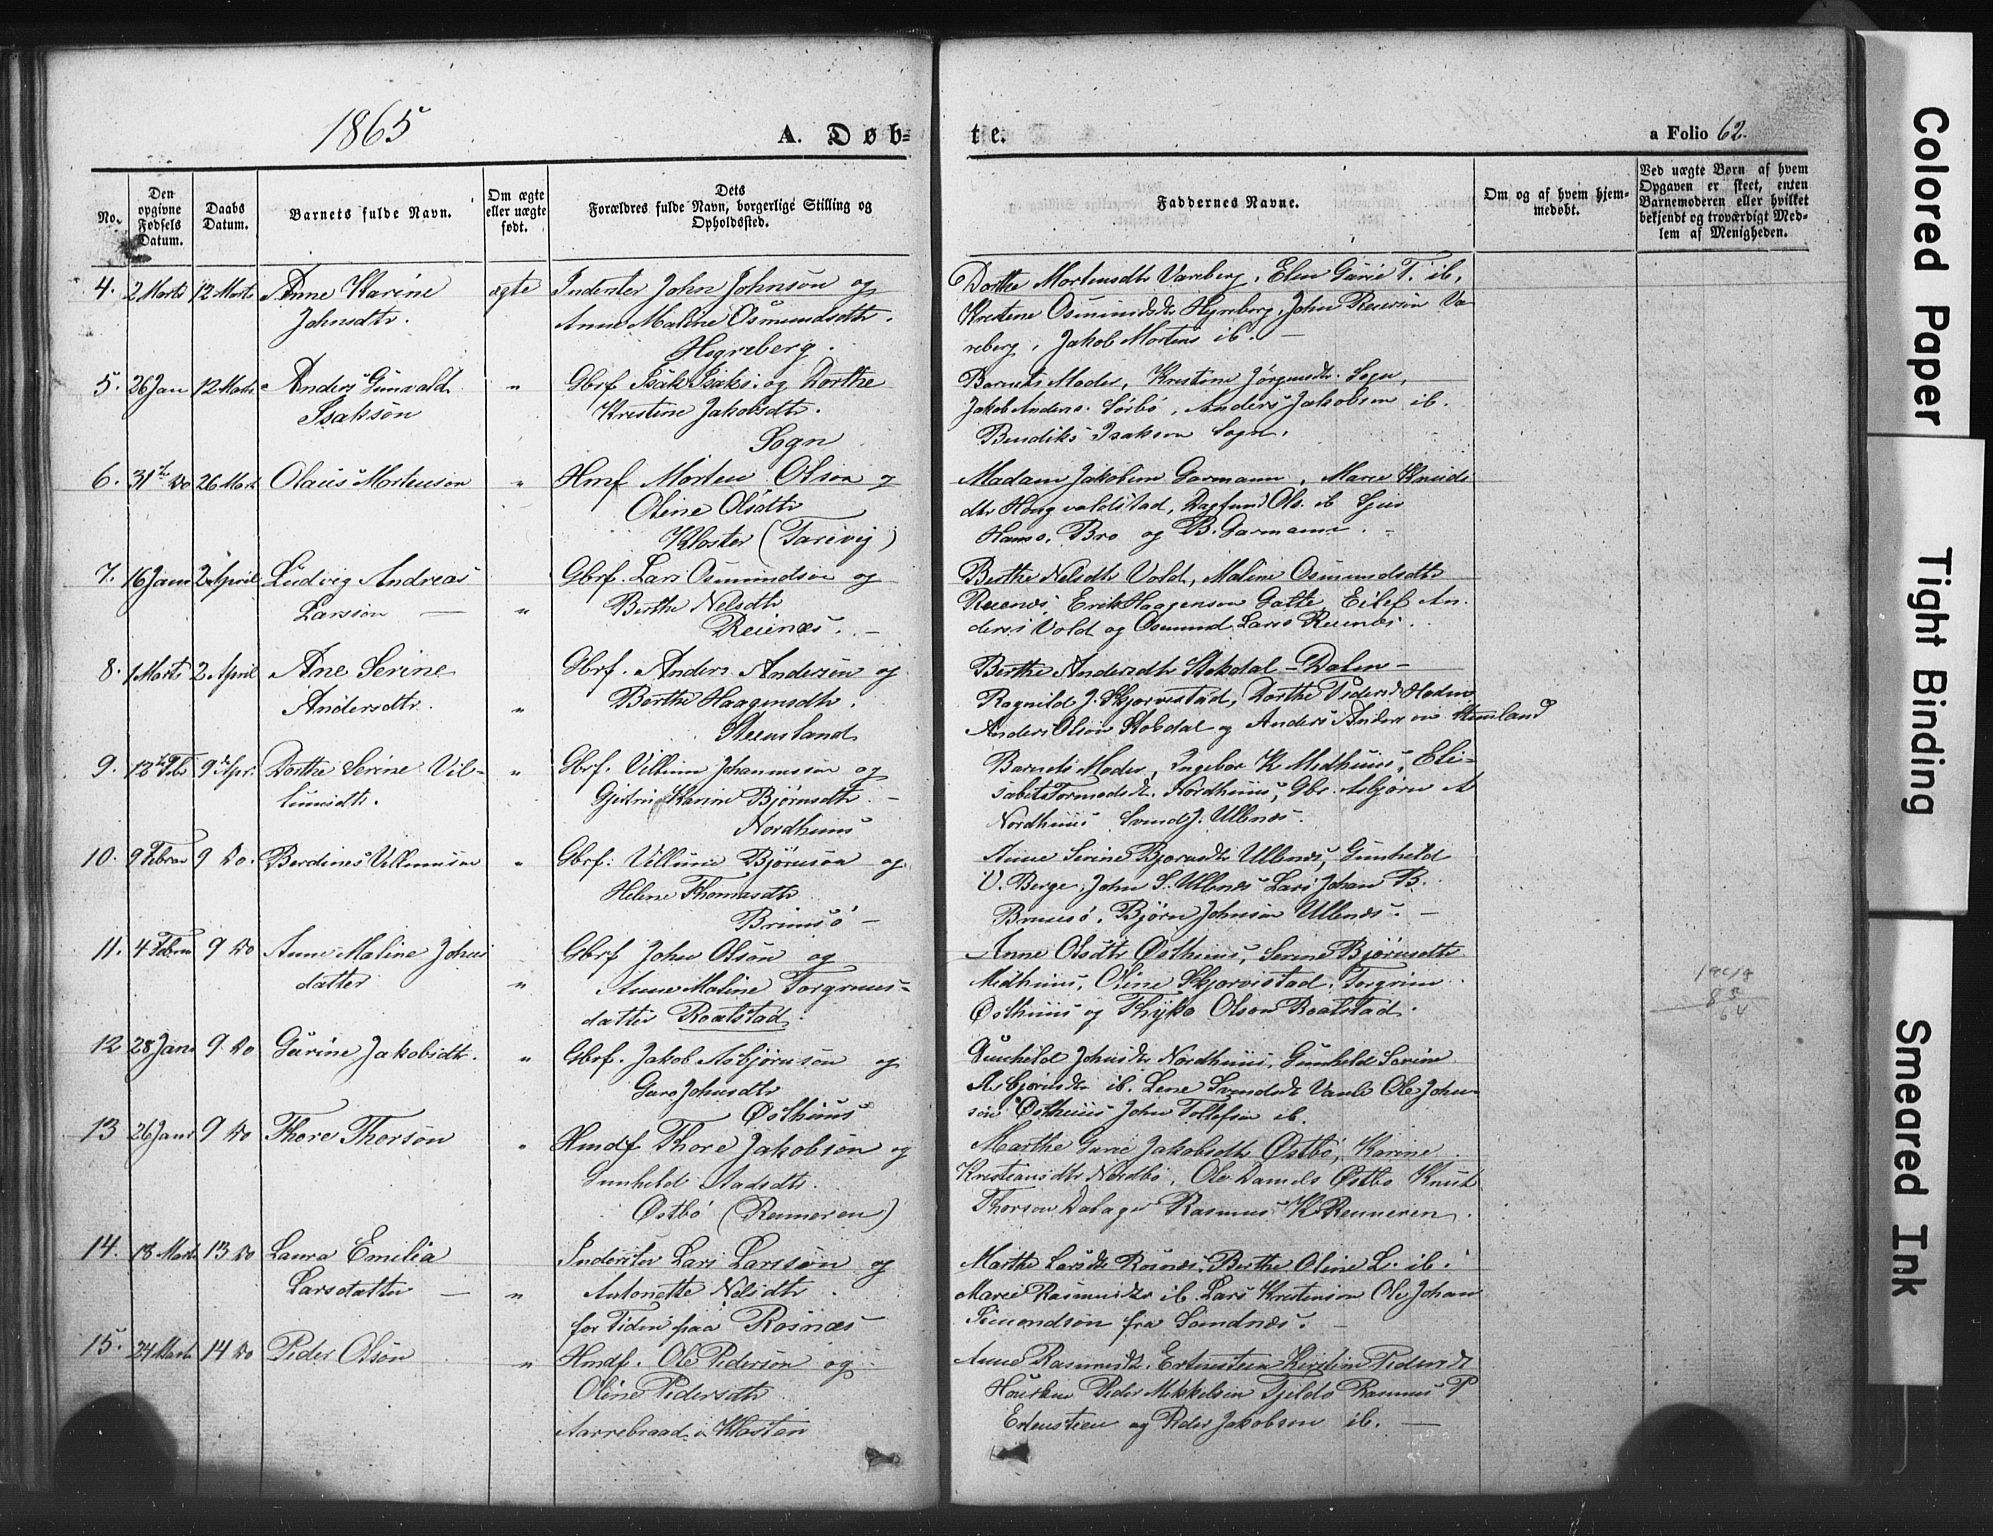 1865
A. Døb-
te.
a Folio 62.
No.
Den opgivne Fødsels Datum.
Daabs Datum.
Barnets fulde Navn.
Om ægte eller uægte født.
Dets Forældres fulde Navn, borgerlige Stilling og Opholdssted.
Faddernes Navne.
Om og af hvem hjemmedøbt.
Ved uægte Børn af hvem Opgaven er skeet, enten Barnemoderen eller hvilket bekjendt og troværdigt Medlem af Menigheden.
4. 2 Marts 12 Marts Anne Karine ægte Inderster John Johnson og
Johnsdtr. Anne Maline Osmundsdtr.
Hegreberg.
Dorthe Mortensdtr Vareberg, Elen Gurie T. ib,
Kristene Osmundsdtr Hegreberg, John Reierson Va-
reberg, Jakob Mortens ib. —
5. 26 Jan 12 Marts Anders Gunvald " Gbrf Isak Isaks. og Dorthe
Isakson Kristine Jakobsdtr.
Sogn
Barnets Moder, Kristine Jørgensdtr. Sogn,
Jakob Anders. Sørbø, Anders Jakobsen ib.
Bendiks Isakson Sogn.
6. 31te Do 26 Mart. Olaus Mortenson " Hmf Morten Olson og
Oline Olsdtr
Kloster (Tarivig)
Madam Jakobine Garmann, Maren Knuds
dtr Hougvaldstad, Dagfind Ols. ib
Hans. Bro og B. Garmann.
7. 16 Janu 2 April Ludvig Andreas Gbrf. Lars Osmundson og
Larsson — " Berthe Nelsdtr
Reienæs. —
Berthe Nelsdtr Vold, Maline Osmundsdtr
Reienæs, Erik Haagenson Gatte, Eilef An-
ders. Vold og Osmund Lars. Reienæs.
8. 1 Marts 2 April Ane Serine Gbrf. Anders Anderson og
Andersdtr. " Berthe Haagensdtr.
Steensland
Berthe Andersdtr Stokdal - Dalen -
Ragnild J. Skjørvestad, Dorthe Pedersd Hoden
Anders Olson Stokdal og Anders Anderson Steensland
9. 12te Feb 9de Apr. Dorthe Serine Vil- " Gbrf. Villum Johannesson og
lumsdtr. Gjertrud Karine Bjørnsdtr. —
Nordhuus
Barnets Moder, Ingebor K Midhuus, Eli-
sabet Tormodsdt. Nordhuus, Gbr. Asbjørn A
Nordhuus Svend J. Ullenæs.
10. 9 Februar 9 Do. Berdines Villumson " Gbrf. Villum Bjørnson og
Helene Thomasdtr
Brimsø —
Anne Serine Bjørnsdtr Ullenæs, Gunheld
V. Berge, John S. Ullenæs Lars Johan B.
Brimsø, Bjørn Johnson Ullenæs. —
11. 4 Febru 9 Do Anne Maline Johns Gbrf John Olson og
datter " Anne Maline Torgrims-
datter Roalstad.
Anne Olsdtr Østhuus, Serine Bjørnsdtr
Midhuus, Oline Skjørvistad, Torgrim
Østhuus og Thyko Olson Roalstad.
12 28 Jan 9 Do Gurine Jakobsdtr. " Gbrf. Jakob Asbjørnson og
Guro Johnsdtr
Østhuus
Gunheld Johnsdtr Nordhuus, Gunheld Serine
Asbjørnsdtr ib. Lene Svendsdt Vaule Ole John-
son Østhuus John Tollefsen ib.
13 26 Janr 9 Do Thore Thorson " Hmdf Thore Jakobson og
Gunheld Aadsdtr.
Østbø (Renneren)
Marthe Gurie Jakobsdtr Østbø, Karine
Kristiansdtr Nordbø, Ole Daniels Østbø Knut
Thorson Dalager Rasmus K. Renneren.
14. 13 Marts 13 Do Laura Emilia Inderster Lars Larsson og
Larsdatter — " Antonette Nelsdtr.
for Tiden paa Rosnæs
Marthe Larsdtr Rosnæs, Berthe Oline L. ib.
Marie Rasmusdtr ib. Lars Kristenson Ole Johan
Simondson fra Sandnæs. —
15. 24 Marts 14 Do Peder Olson " Hmdf. Ole Pederson og
Oline Pedersdtr
Aarrebraad i Klosten
Anne Rasmusdt. Ertensteen Kirstine Pedersdt
Peder Mikkelsen Tjelde Rasmus P
Ertensteen og Peder Jakobsen ib. —
64
Colored Paper
Tight Binding
Smeared Ink